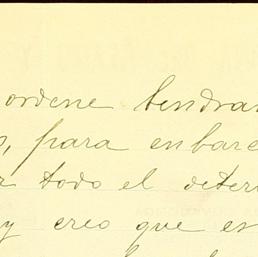 ordene tendran
, para enbarc
r todo el deter
y creo que es